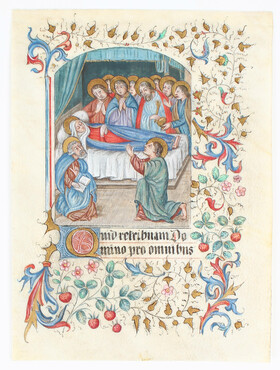 Quid retribuam Do
mino pro omnibus